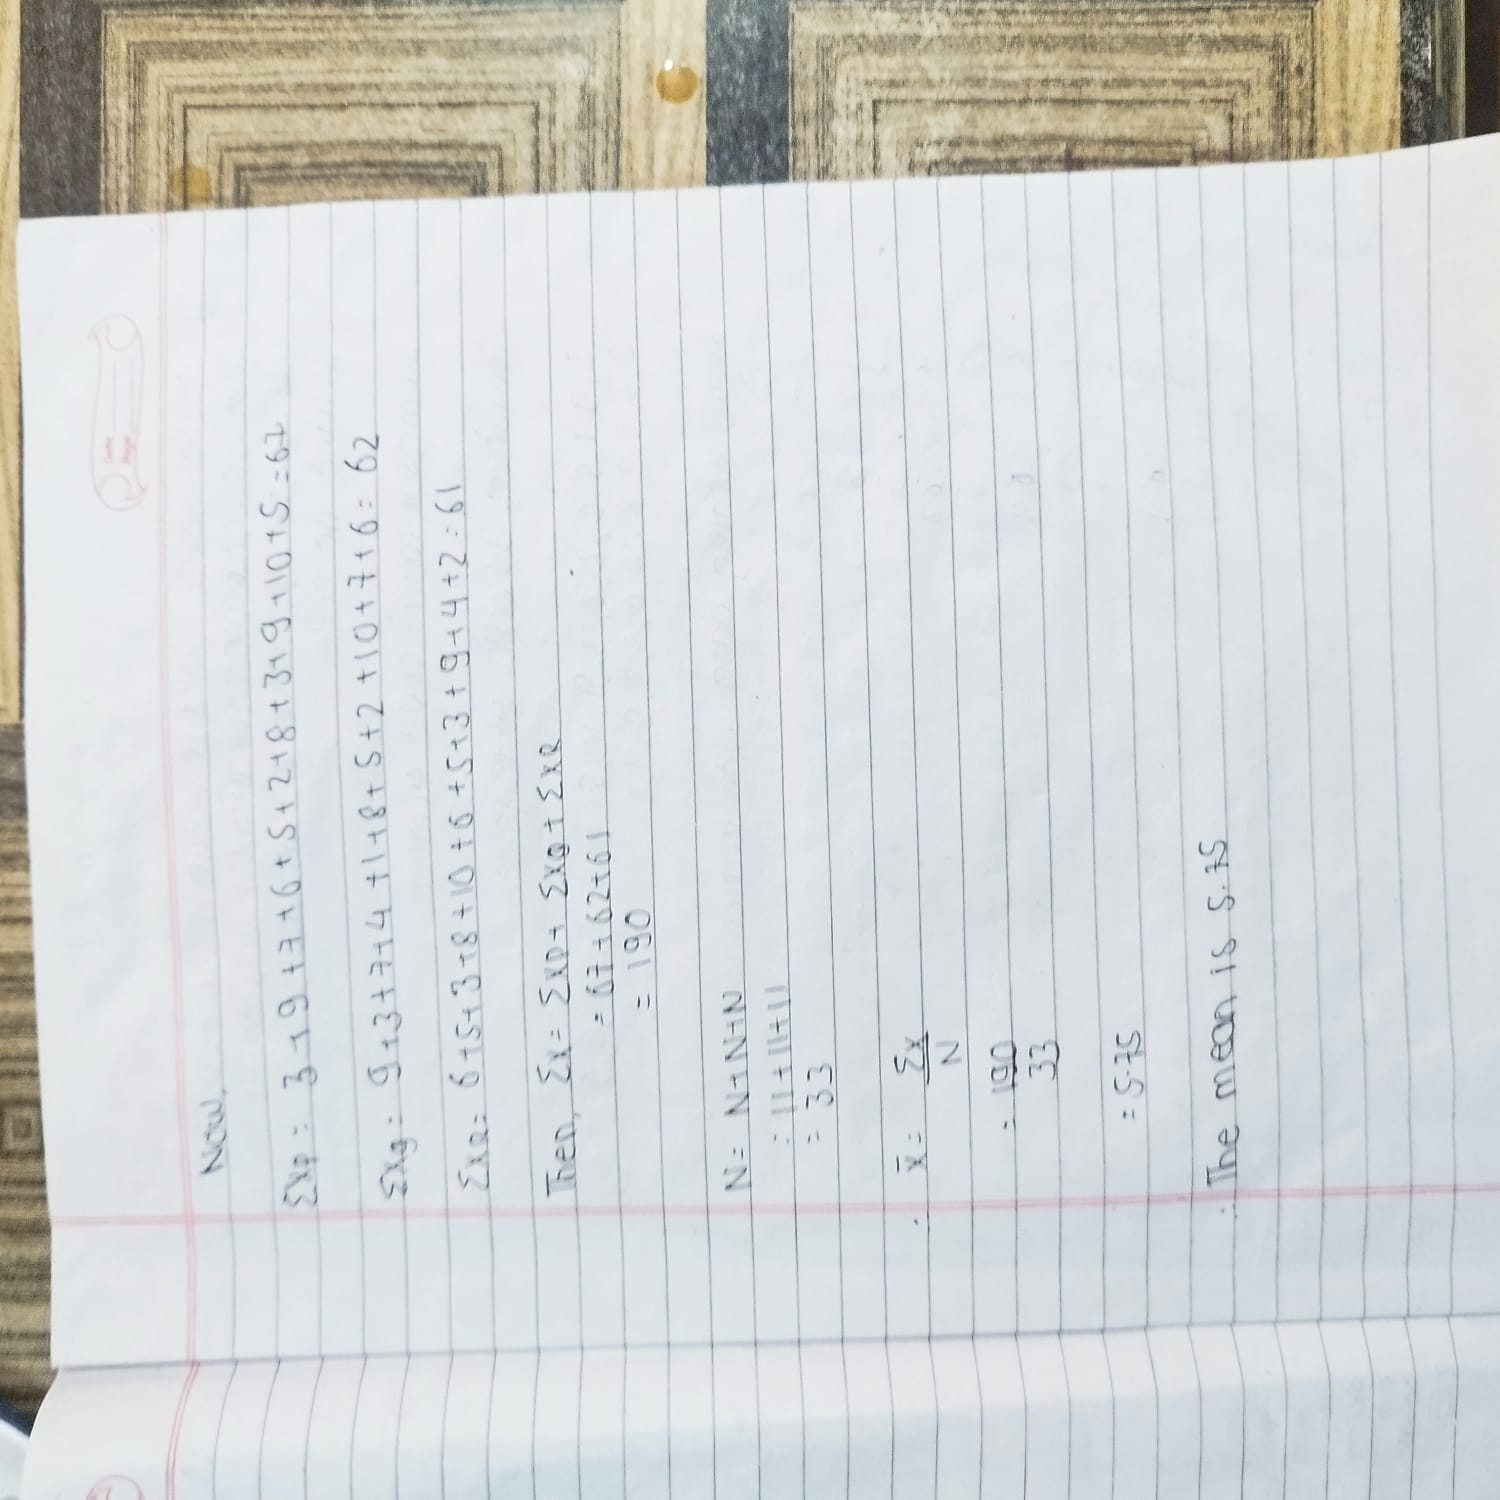 Date
Page
Now,
Σxp = 3+9+7+6+5+2+8+3+9+10+5 = 67
Σxq = 9+3+7+4+1+8+5+2+10+7+6 = 62
ΣxR = 6+5+3+8+10+6+5+3+9+4+2 = 61
Then, Σx = ΣxP + ΣxQ + ΣxR
= 67+62+61
= 190
N = N+N+N
= 11+11+11
= 33
∴ x̄ = Σx
N
= 190
33
= 5.75
∴ The mean is 5.75